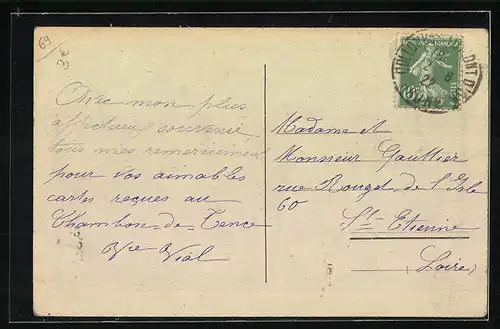 69
Avec mon plus
affectueux souvenir,
tous mes remerciements
pour vos aimables
cartes reçues au
Chambon de Tence
Vial
Madame et
Monsieur Gauttier
rue Rouget de l'Isle
60
St-Etienne
(Loire)